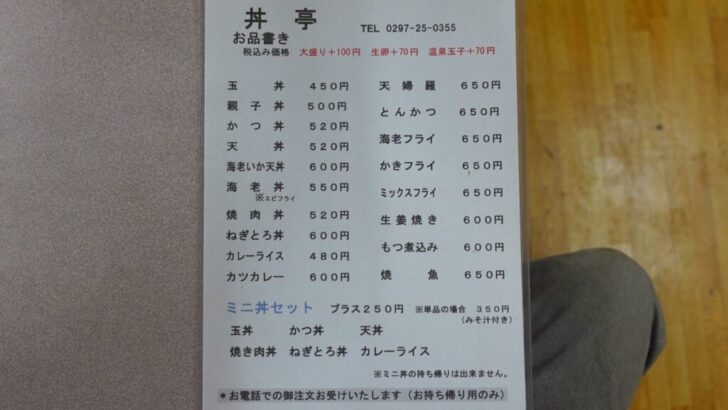 丼亭 TEL 0297-25-0355
お品書き
税込み価格 大盛り+100円 生卵+70円 温泉玉子+70円
玉丼 450円
親子丼 500円
かつ丼 520円
天丼 520円
海老いか天丼 600円
海老丼 550円
※エビフライ
焼肉丼 520円
ねぎとろ丼 600円
カレーライス 480円
カツカレー 600円
天婦羅 650円
とんかつ 650円
海老フライ 650円
かきフライ 650円
ミックスフライ 650円
生姜焼き 600円
もつ煮込み 600円
焼魚 650円
ミニ丼セット プラス250円 ※単品の場合 350円
(みそ汁付き)
玉丼 かつ丼 天丼
焼き肉丼 ねぎとろ丼 カレーライス
※ミニ丼の持ち帰りは出来ません。
*お電話での御注文お受けいたします(お持ち帰り用のみ)